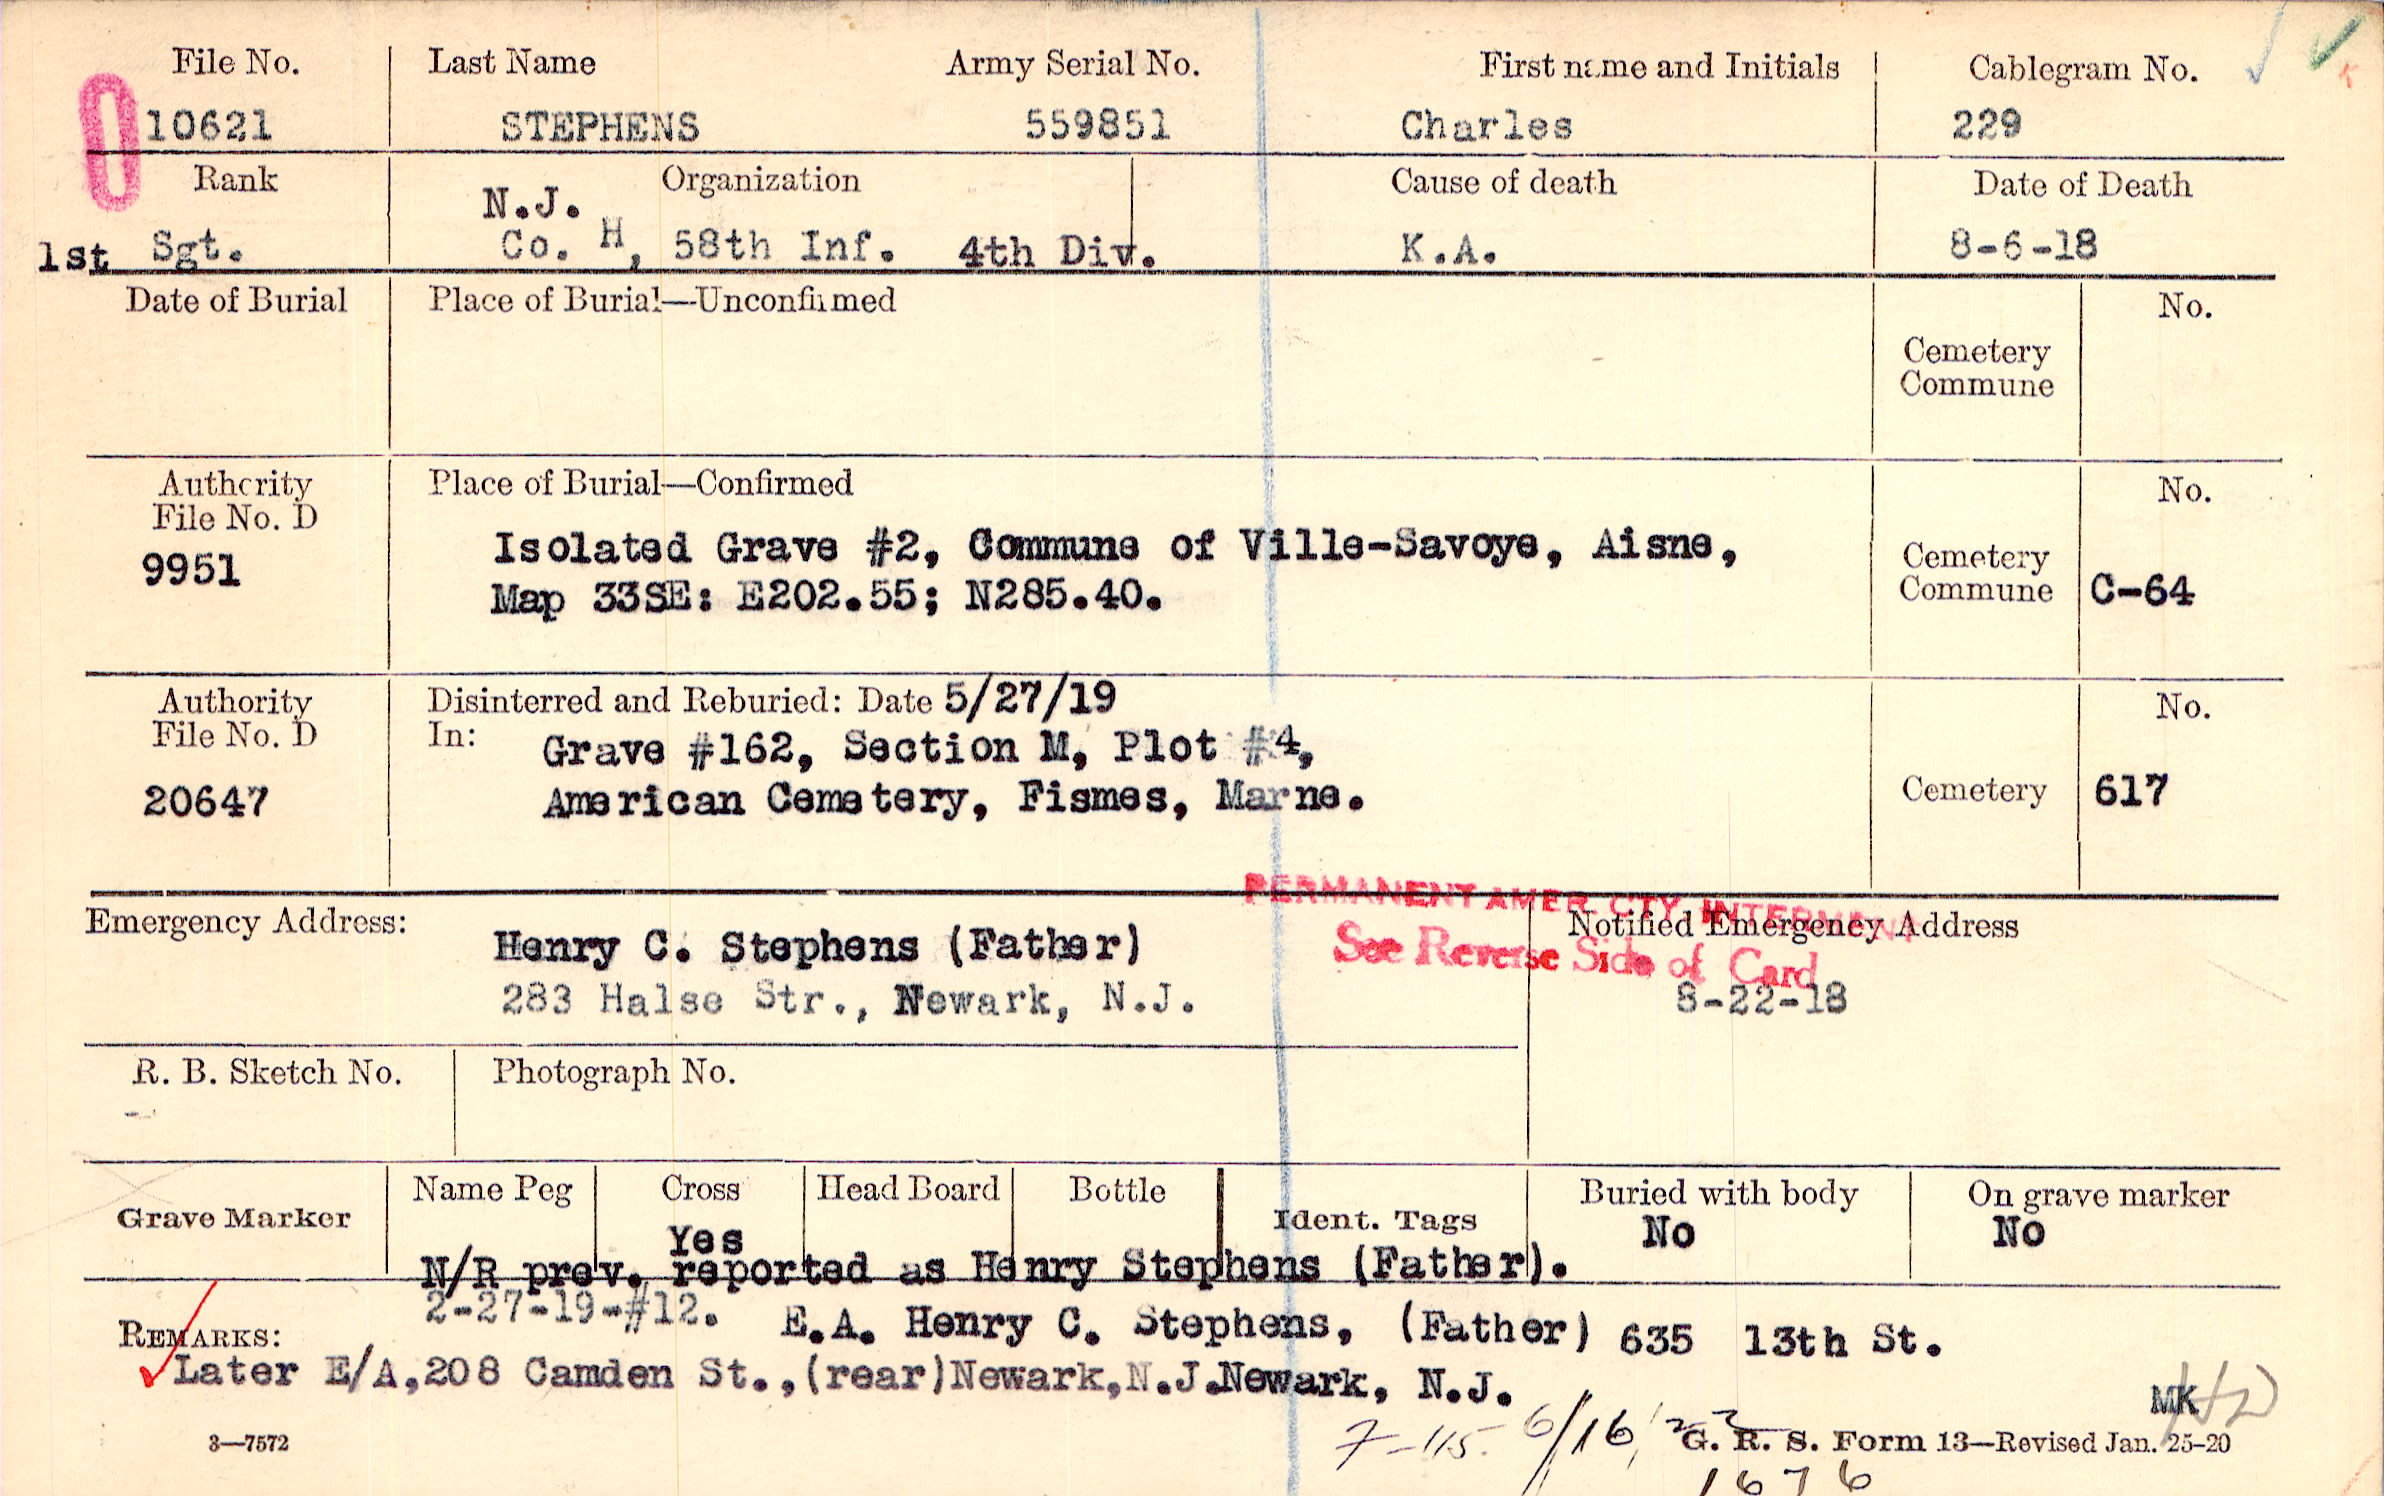 File No. Last Name Army Serial No. First name and Initials Cablegram No.
10621 STEPHENS 559851 Charles 229
Rank Organization Cause of death Date of Death
N.J.
1st Sgt. Co. H, 58th Inf. 4th Div. K.A. 8-6-18
Date of Burial Place of Burial—Unconfirmed No.
Cemetery
Commune
Authority Place of Burial—Confirmed No.
File No. D
9951 Isolated Grave #2, Commune of Ville-Savoye, Aisne,
Map 33SE: E202.55; N285.40.
Cemetery
Commune C-64
Authority Disinterred and Reburied: Date 5/27/19 No.
File No. D In: Grave #162, Section M, Plot #4,
20647 American Cemetery, Fismes, Marne. Cemetery 617
PERMANENT AMER. CTY. INTERMENT
Emergency Address: Notified Emergency Address
Henry C. Stephens (Father) See Reverse Side of Card
283 Halse Str., Newark, N.J. 8-22-18
R. B. Sketch No. Photograph No.
Grave Marker Name Peg Cross Head Board Bottle Ident. Tags Buried with body On grave marker
Yes No No
N/R prev. reported as Henry Stephens (Father).
2-27-19-#12. E.A. Henry C. Stephens, (Father) 635 13th St.
REMARKS:
Later E/A, 208 Camden St., (rear) Newark, N.J. Newark, N.J.
MK
7-115. 6/16
3—7572 G. R. S. Form 13—Revised Jan. 25-20
1676